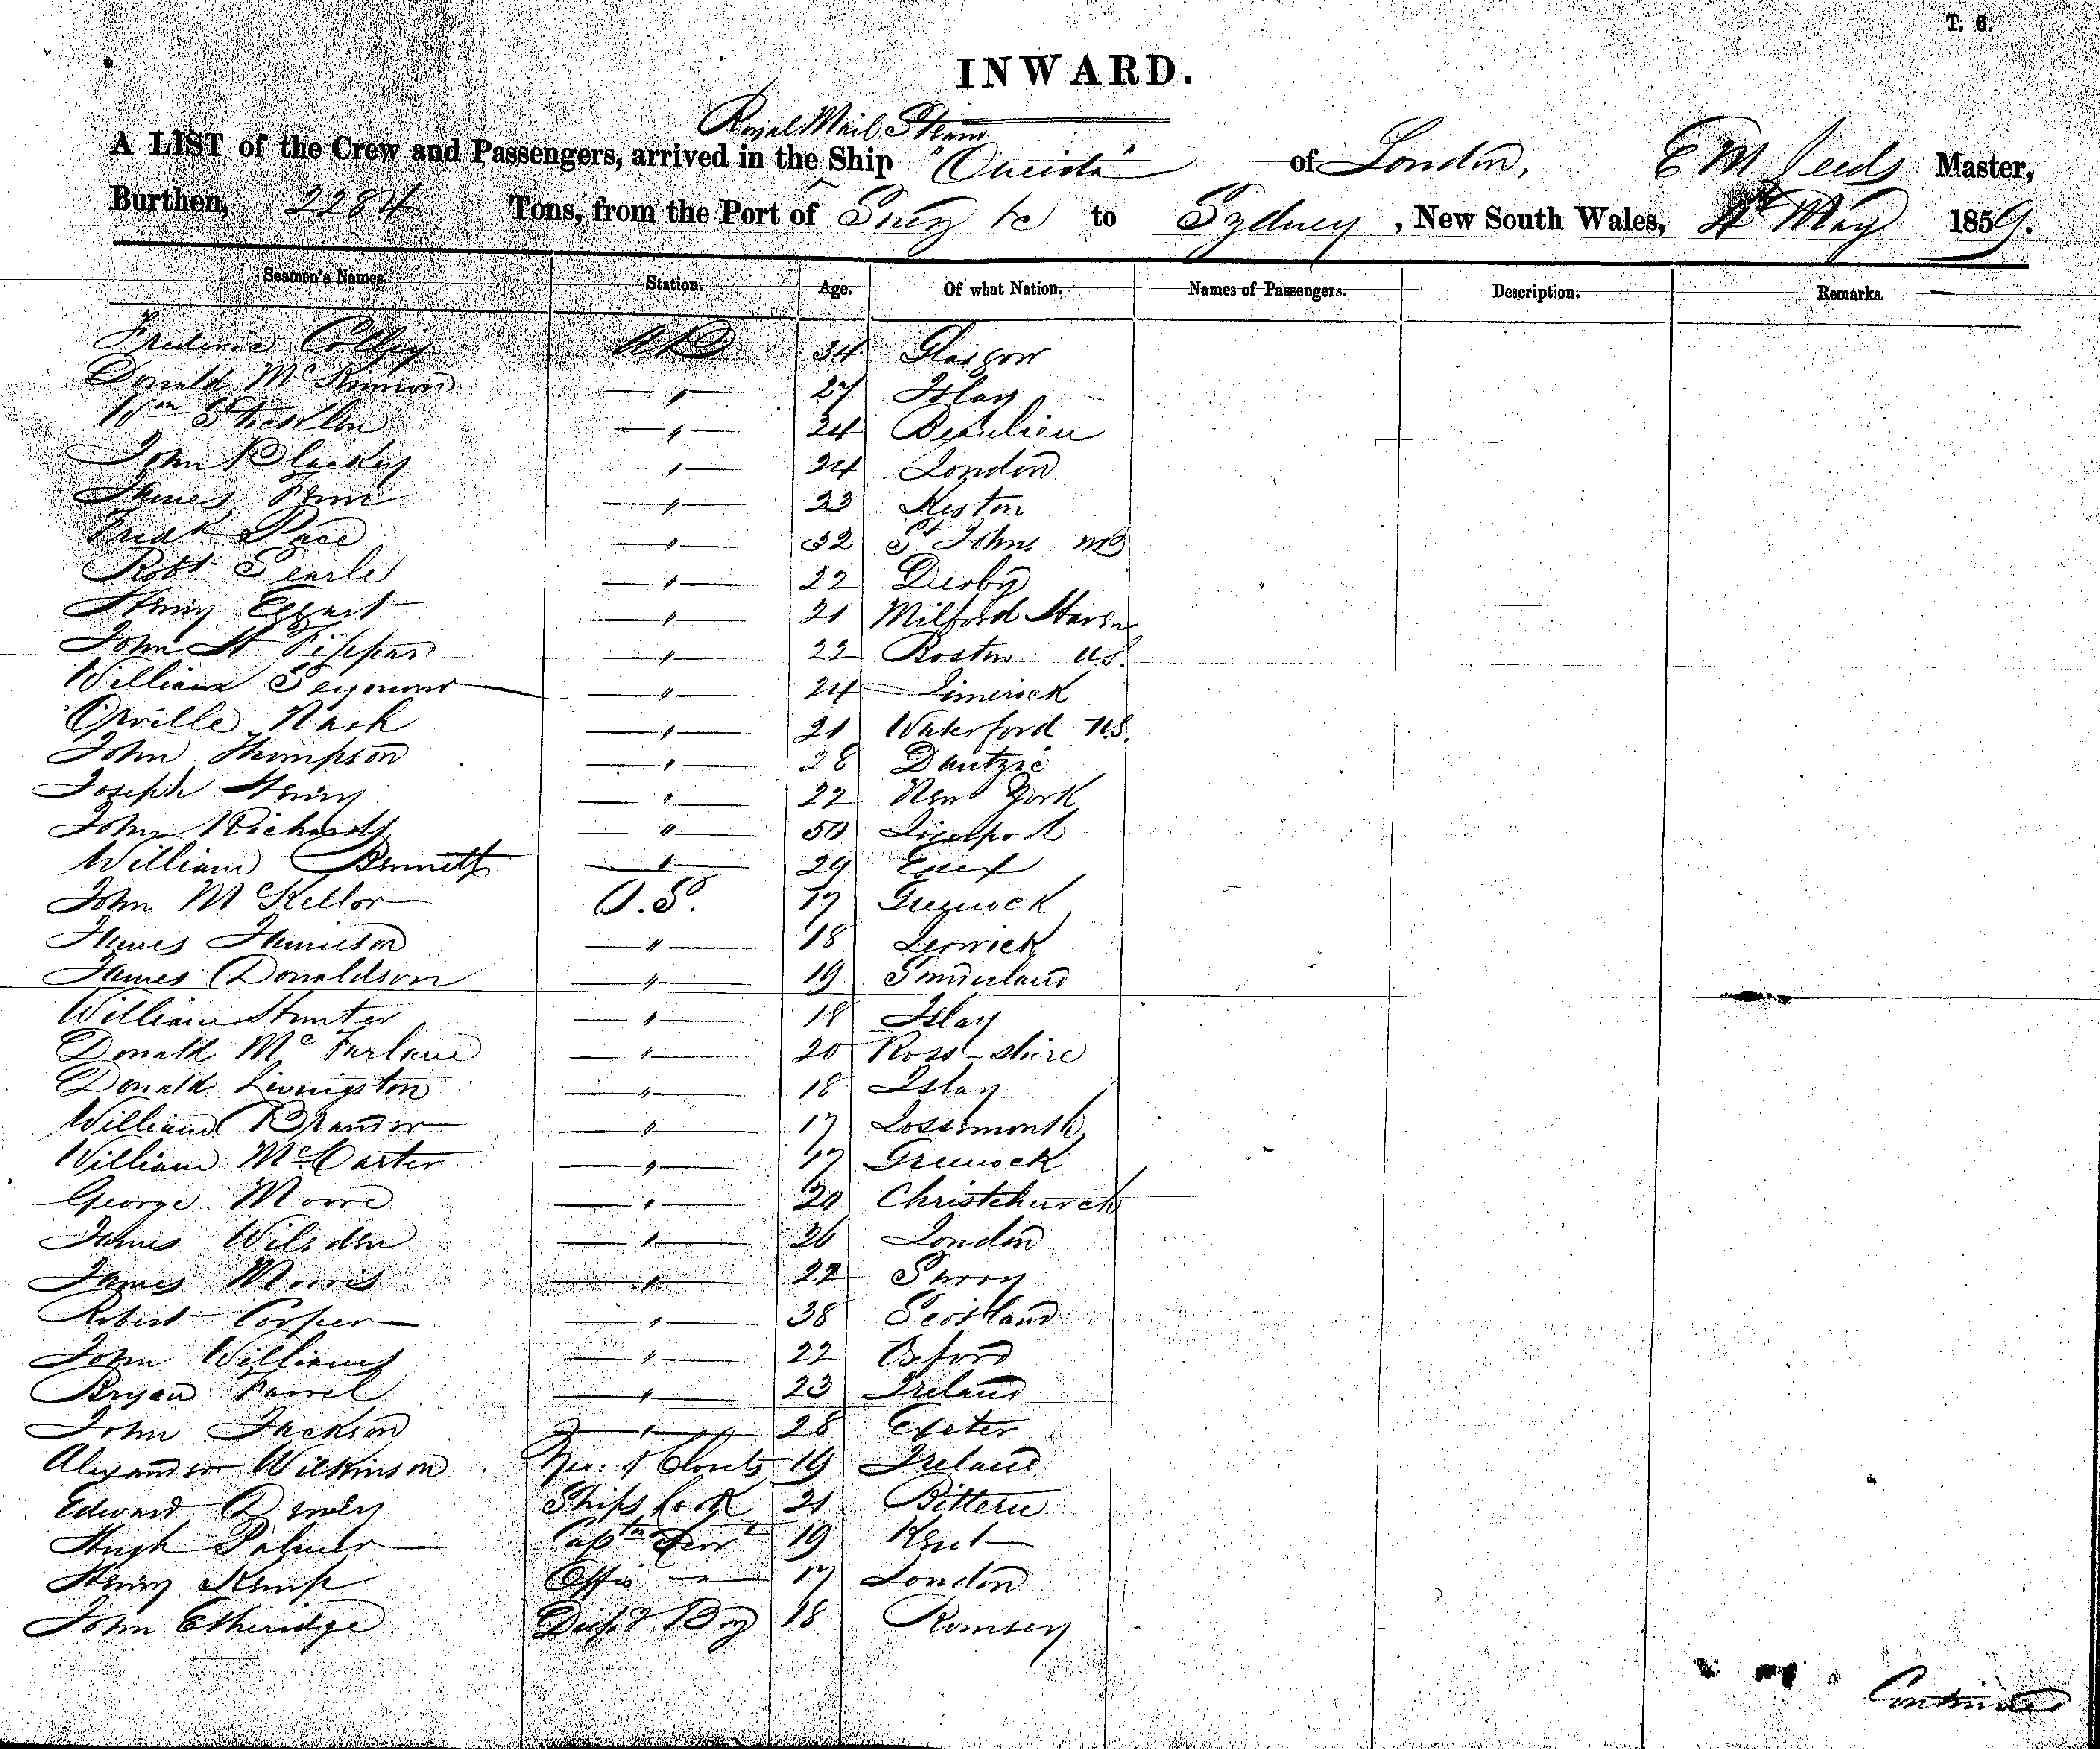 T. 6.
INWARD.
Royal Mail Steam
A LIST of the Crew and Passengers, arrived in the Ship "Oneida" of London, E M Leeds Master,
Burthen, 2284 Tons, from the Port of Suez &c to Sydney, New South Wales, May 1859.
Seamen's Names. Station. Age. Of what Nation. Names of Passengers. Description. Remarks.
Frederic AB 34 Glasgow
Donald McKinnon — " — 27 Islay
Wm — " — 24 Beaulieu
John Blackey — " — 24 London
James Penn — " — 23 Keston
Fredk Pace — " — 32 St Johns
Robt Searle — " — 22 Derby
Henry — " — 21 Milford Haven
John H Pippas — " — 22 Boston U.S.
William Seymour — " — 24 Limerick
Orville Nash — " — 21 Waterford U.S.
John Thompson — " — 28 Dantzic
Joseph Henry — " — 22 New York
John Richards — " — 50 Liverpool
William Bennett — " — 29 Essex
John McKellor O.S. 17 Greenock
James Jamieson — " — 18 Lerwick
James Donaldson — " — 19 Sunderland
William Hunter — " — 18 Islay
Donald McFarlane — " — 20 Ross-shire
Donald Livingston — " — 18 Islay
William Brander — " — 17 Lossimouth
William McCarter — " — 17 Greenock
George Moore — " — 20 Christchurch
James Wilsden — " — 26 London
James Morris — " — 22 Surry
Robert Cooper — " — 38 Scotland
John Williams — " — 22 Oxford
Bryan Farrel — " — 23 Ireland
John Jackson — " — 28 Exeter
Alexander Wilkinson 19 Ireland
Edward Ships Cook 21 Bittern
Hugh Palmer Captn Servt 19 Kent
Henry Kemp Offis — " — 17 London
John Etheridge Boy 18 Romsey
Continued